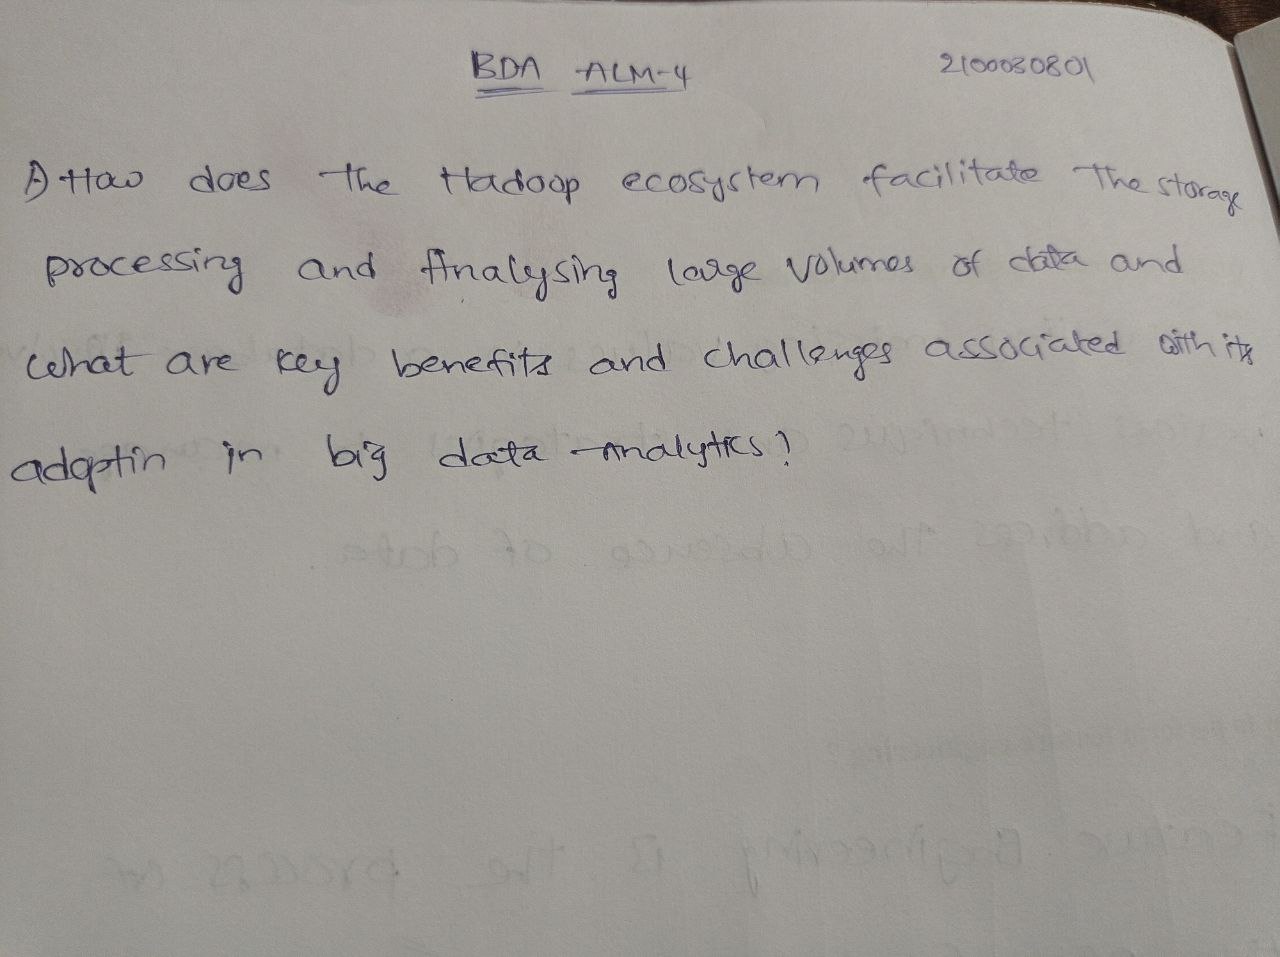 BDA ALM-4 2100030801
1) How does the Hadoop ecosystem facilitate The storage
processing and Analysing large volumes of data and
what are key benefits and challenges associated with its
adoptin in big data Analytics?